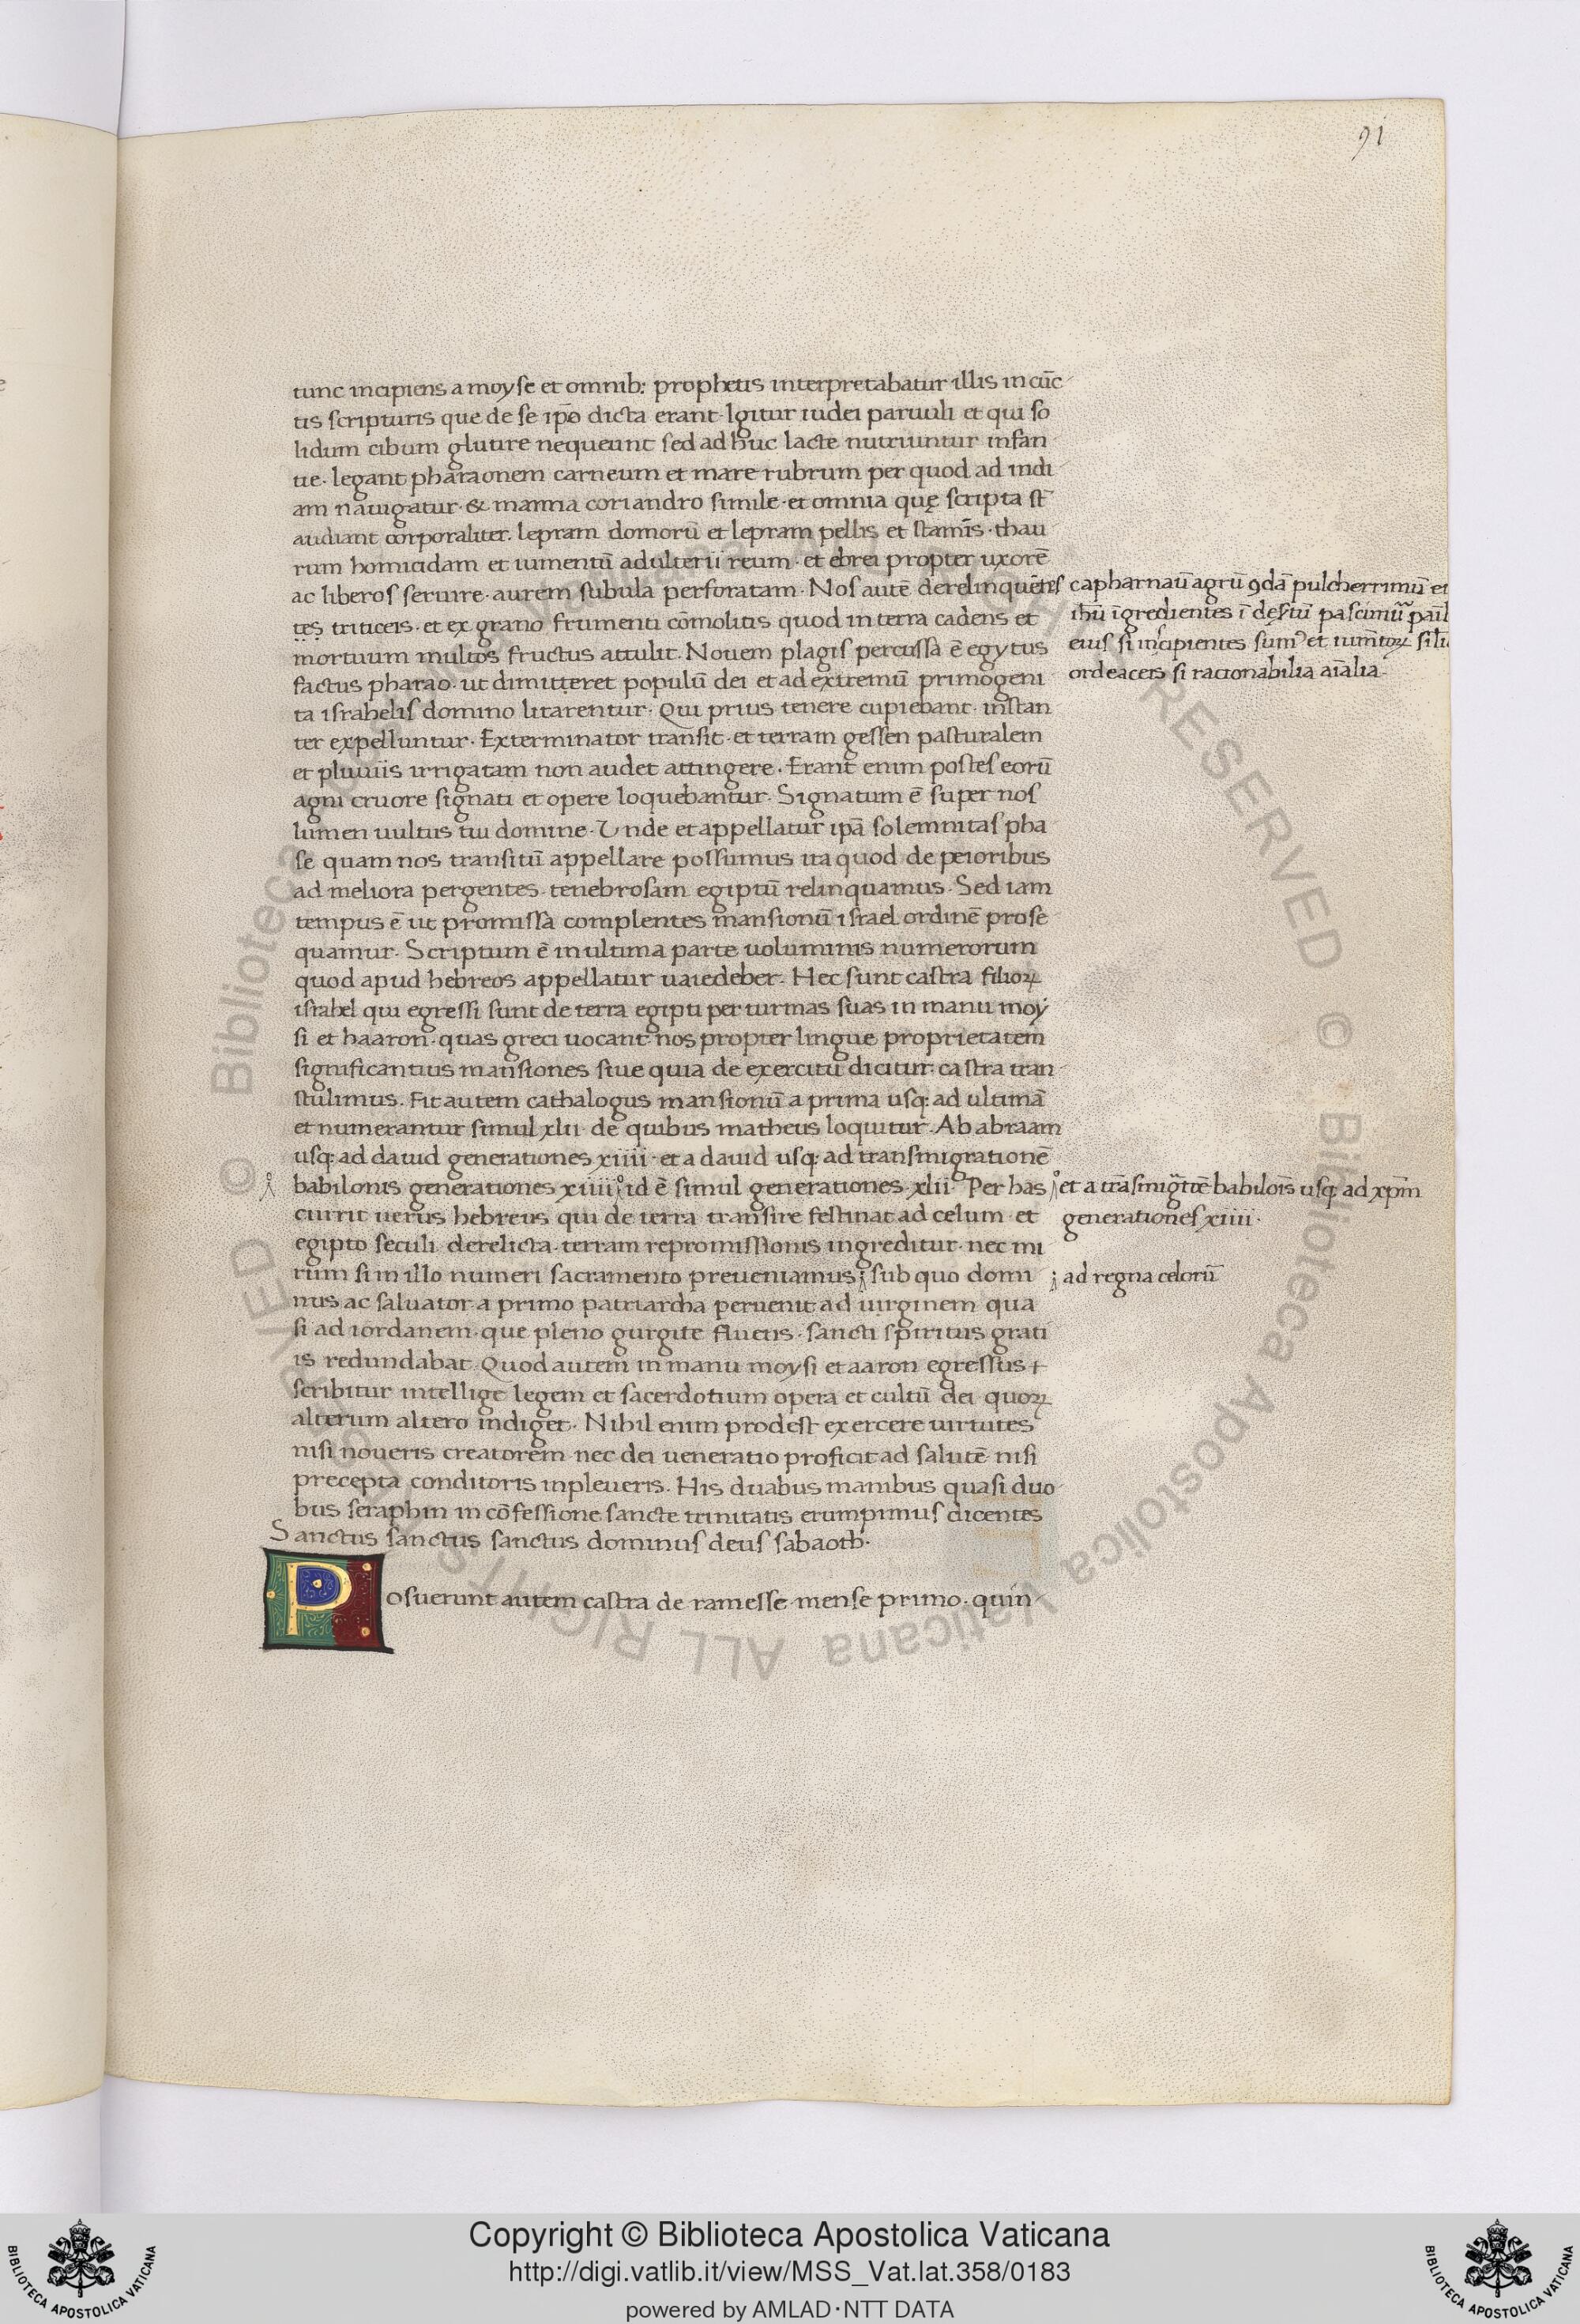 91
tunc incipiens a moyse et omnib; prophetis interpretabatur illis in cūc
tis scripturis que de se ip̄o dicta erant. Igitur iudei paruuli et qui so
lidum cibum glutire nequeunt sed adhuc lacte nutriuntur infan
tie. legant pharaonem carneum et mare rubrum per quod ad indi
am nauigatur. & manna coriandro simile. et omnia quę scripta st̄
audiant corporaliter. lepram domorū et lepram pellis et stamīs. thau
rum homicidam et iumentū adulterii reum. et ebrei propter uxorē
ac liberos seruire. aurem subula perforatam. Nos autē derelinquētes
tes triticeis. et ex grano frumenti cōmolitis quod in terra cadens et
mortuum multos fructus attulit. Nouem plagis percussa ē egytus
factus pharao. ut dimitteret populū dei et ad extremū primogeni
ta israhelis domino litarentur. Qui prius tenere cupiebant. instan
ter expelluntur. Exterminator transit. et terram gessen pasturalem
et pluuiis irrigatam non audet attingere. Erant enim postes eorū
agni cruore signati et opere loquebantur. Signatum ē super nos
lumen uultus tui domine. Unde et appellatur ip̄a solemnitas pha
se quam nos transitū appellare possumus ita quod de peioribus
ad meliora pergentes. tenebrosam egiptū relinquamus. Sed iam
tempus ē ut promissa complentes mansionū israel ordinē prose
quamur. Scriptum ē in ultima parte uoluminis numerorum
quod apud hebreos appellatur uaiedeber. Hec sunt castra filioꝝ
israhel qui egressi sunt de terra egipti per turmas suas in manu moy
si et haaron. quas greci uocant nos propter lingue proprietatem
significantius mansiones siue quia de exercitu dicitur castra tran
stulimus. Fit autem cathalogus mansionū a prima usq; ad ultimā
et numerantur simul xlii. de quibus matheus loquitur. Ab abraam
usq; ad dauid generationes xiiii. et a dauid usq; ad transmigrationē
babilonis generationes xiiii id ē simul generationes. xlii. Per has
currit uerus hebreus qui de terra transire festinat ad celum. et
egipto seculi derelicta. terram repromissionis ingreditur. nec mi
rum si in illo numeri sacramento preueniamus sub quo domi
nus ac saluator a primo patriarcha peruenit ad uirginem qua
si ad iordanem. que pleno gurgite fluens. sancti spiritus grati
is redundabat. Quod autem in manu moysi et aaron egressus +
scribitur intellige legem et sacerdotium opera et cultū dei quoꝝ
alterum altero indiget. Nihil enim prodest exercere uirtutes
nisi noueris creatorem. nec dei ueneratio proficit ad salutē nisi
precepta conditoris inpleueris. His duabus manibus quasi duo
bus seraphin in cōfessione sancte trinitatis erumpimus dicentes
Sanctus sanctus sanctus dominus deus sabaoth.
Posuerunt autem castra de ramesse mense primo. quin
capharnaū agrū ꝯdā pulcherrimū et
ihū īgredientes ī
eius si īcipientes sum᾿ et
ordeaceis si racionabilia aīalia.
et a trāsmigr̄tiōe babilois usq; ad xp̄m
generationes xiiii.
ad regna celorū
© Biblioteca Apostolica Vaticana ALL RIGHTS RESERVED
Copyright © Biblioteca Apostolica Vaticana
http://digi.vatlib.it/view/MSS_Vat.lat.358/0183
powered by AMLAD·NTT DATA
BIBLIOTECA APOSTOLICA VATICANA
BIBLIOTECA APOSTOLICA VATICANA